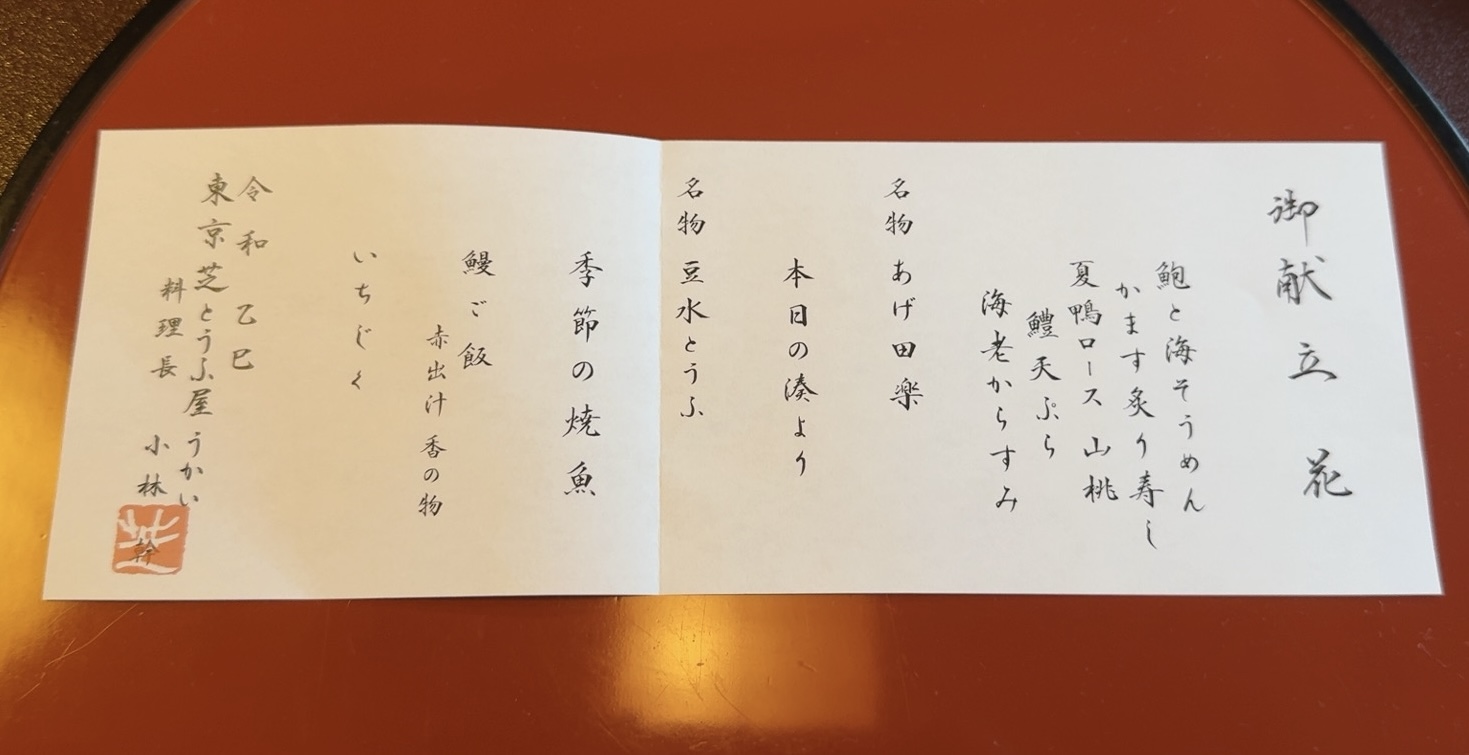 御献立 花
鮑と海そうめん
かます炙り寿し
夏鴨ロース 山桃
鱧天ぷら
海老からすみ
名物 あげ田楽
本日の湊より
名物 豆水とうふ
季節の焼魚
鰻ご飯
赤出汁 香の物
いちじく
令和 乙巳
東京芝とうふ屋うかい
料理長 小林 幹
芝